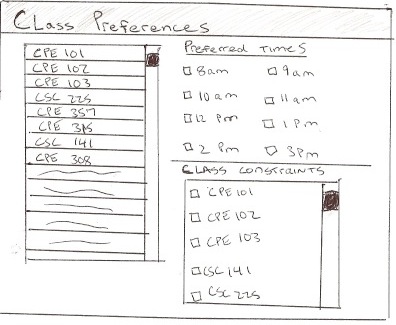 CLass Preferences
CPE 101
CPE 102
CPE 103
CSC 225
CPE 357
CPE 315
CSC 141
CPE 308
Preferred Times
8am 9am
10 am 11am
12 Pm 1 Pm
2 Pm 3Pm
CLASS CONSTRAINTS
CPE 101
CPE 102
CPE 103
CSC 141
CSC 225